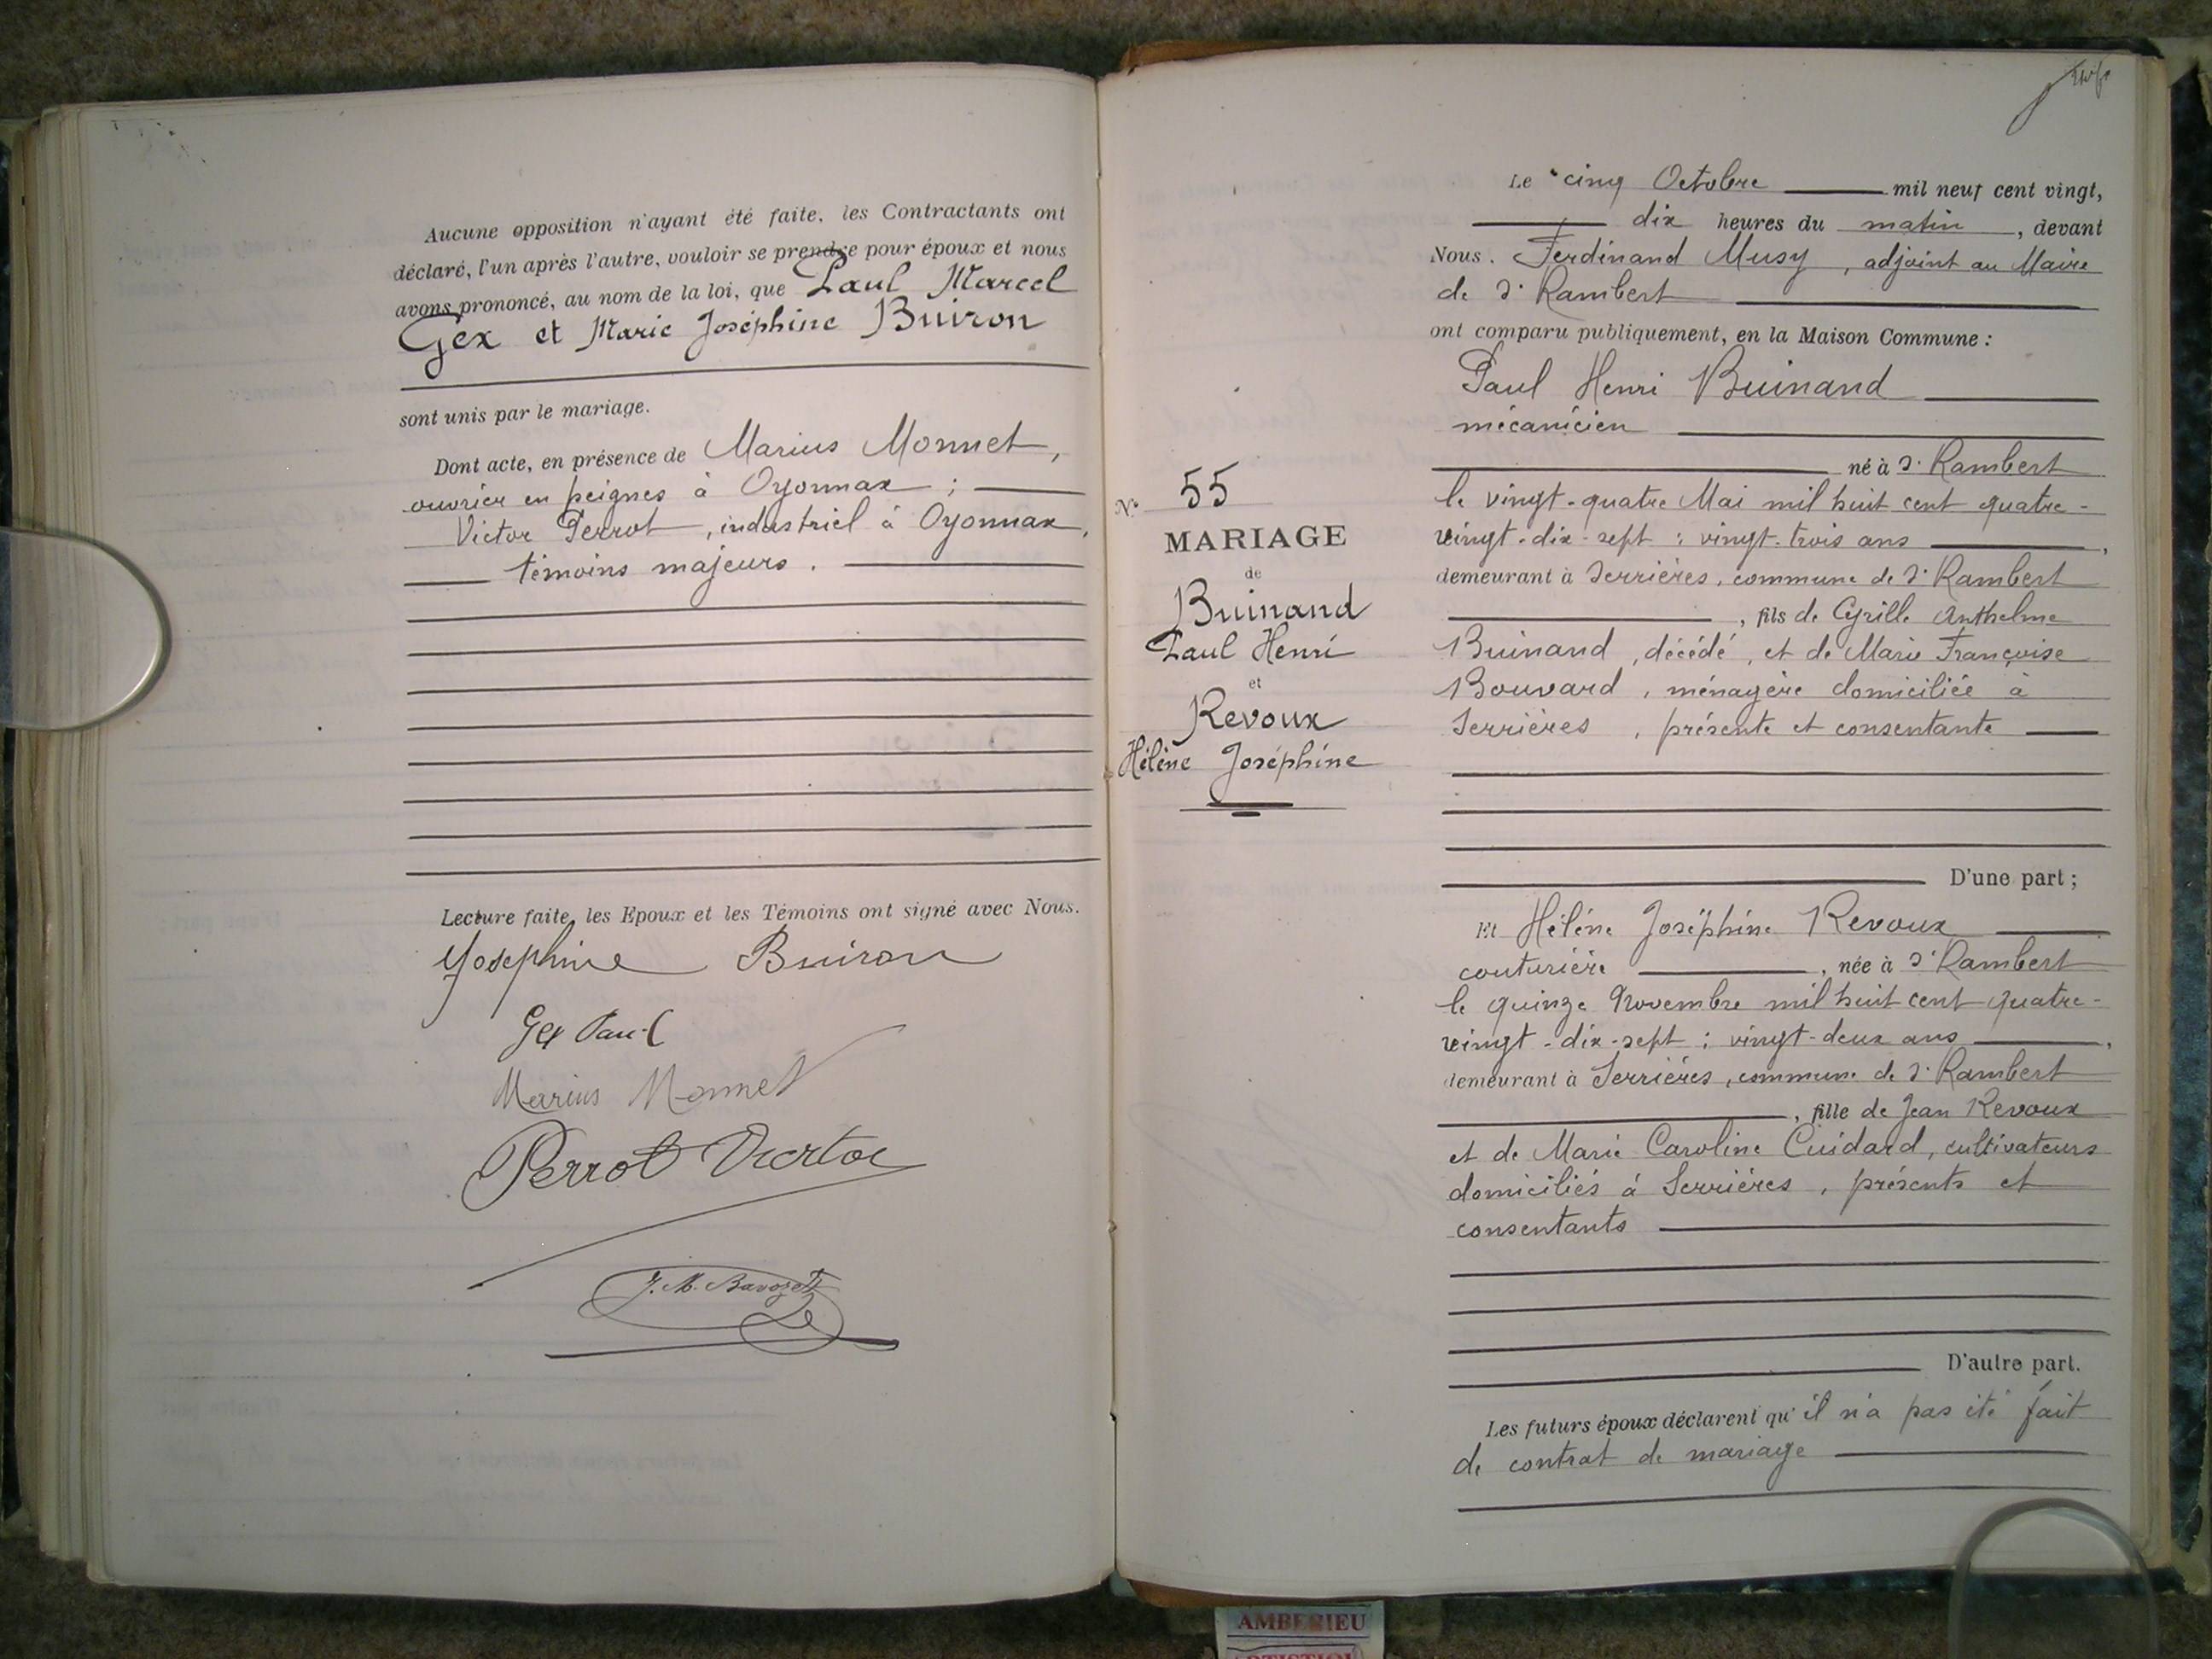 Aucune opposition n'ayant été faite, les Contractants ont
déclaré, l'un après l'autre, vouloir se prendre pour époux et nous
avons prononcé, au nom de la loi, que Paul Marcel
Gex et Marie Joséphine Buiron
sont unis par le mariage.
Dont acte, en présence de Marius Monnet,
ouvrier en peignes à Oyonnax ;
Victor Perrot, industriel à Oyonnax,
témoins majeurs.
Lecture faite, les Epoux et les Témoins ont signé avec Nous.
Josephine Buiron
Gex Paul
Marius Monnet
Perrot Victor
J. M. Bavozet
N° 55
MARIAGE
de
Buinand
Paul Henri
et
Revoux
Hélène Joséphine
Le cinq Octobre mil neuf cent vingt,
dix heures du matin, devant
Nous. Ferdinand Musy, adjoint au Maire
de St Rambert
ont comparu publiquement, en la Maison Commune :
Paul Henri Buinand
mécanicien
né à St Rambert
le vingt-quatre Mai mil huit cent quatre-
vingt-dix-sept ; vingt-trois ans,
demeurant à Serrières, commune de St Rambert
, fils de Cyrille Anthelme
Buinand, décédé, et de Marie Françoise
Bouvard, ménagère domiciliée à
Serrières, présente et consentante
D'une part ;
Et Hélène Joséphine Revoux
couturière, née à St Rambert
le quinze Novembre mil huit cent quatre-
vingt-dix-sept ; vingt-deux ans,
demeurant à Serrières, commune de St Rambert
, fille de Jean Revoux
et de Marie Caroline Cuidard, cultivateurs
domiciliés à Serrières, présents et
consentants
D'autre part.
Les futurs époux déclarent qu'il n'a pas été fait
de contrat de mariage
AMBERIEU